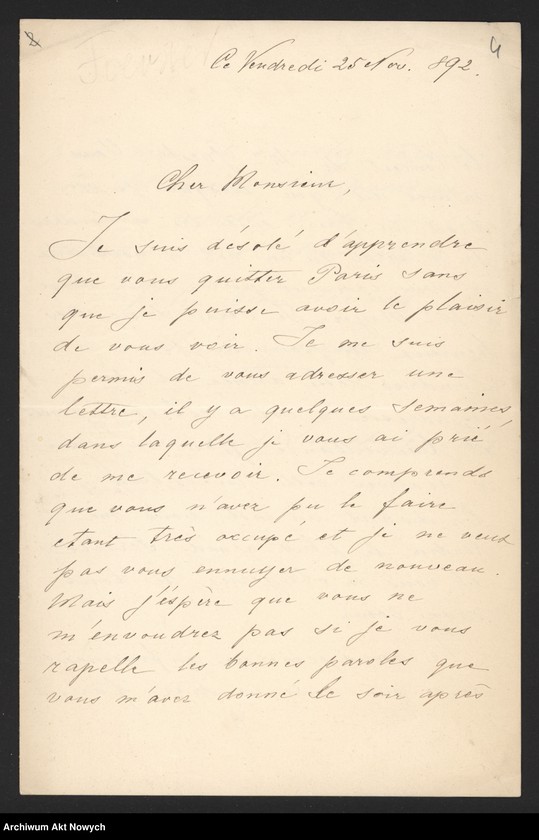 4
Ce Vendredi 25 Nov. 892.
Cher Monsieur,
Je suis désolé d'apprendre
que vous quitter Paris sans
que je puisse avoir le plaisir
de vous voir. Je me suis
permis de vous adresser une
lettre, il y a quelques semaines,
dans laquelle je vous ai prié
de me recevoir. Je comprends
que vous n'avez pu le faire
etant très occupé et je ne veux
pas vous ennuyer de nouveau.
Mais j'éspère que vous ne
m'envoudrez pas si je vous
rapelle les bonnes paroles que
vous m'avez donné le soir après
Archiwum Akt Nowych